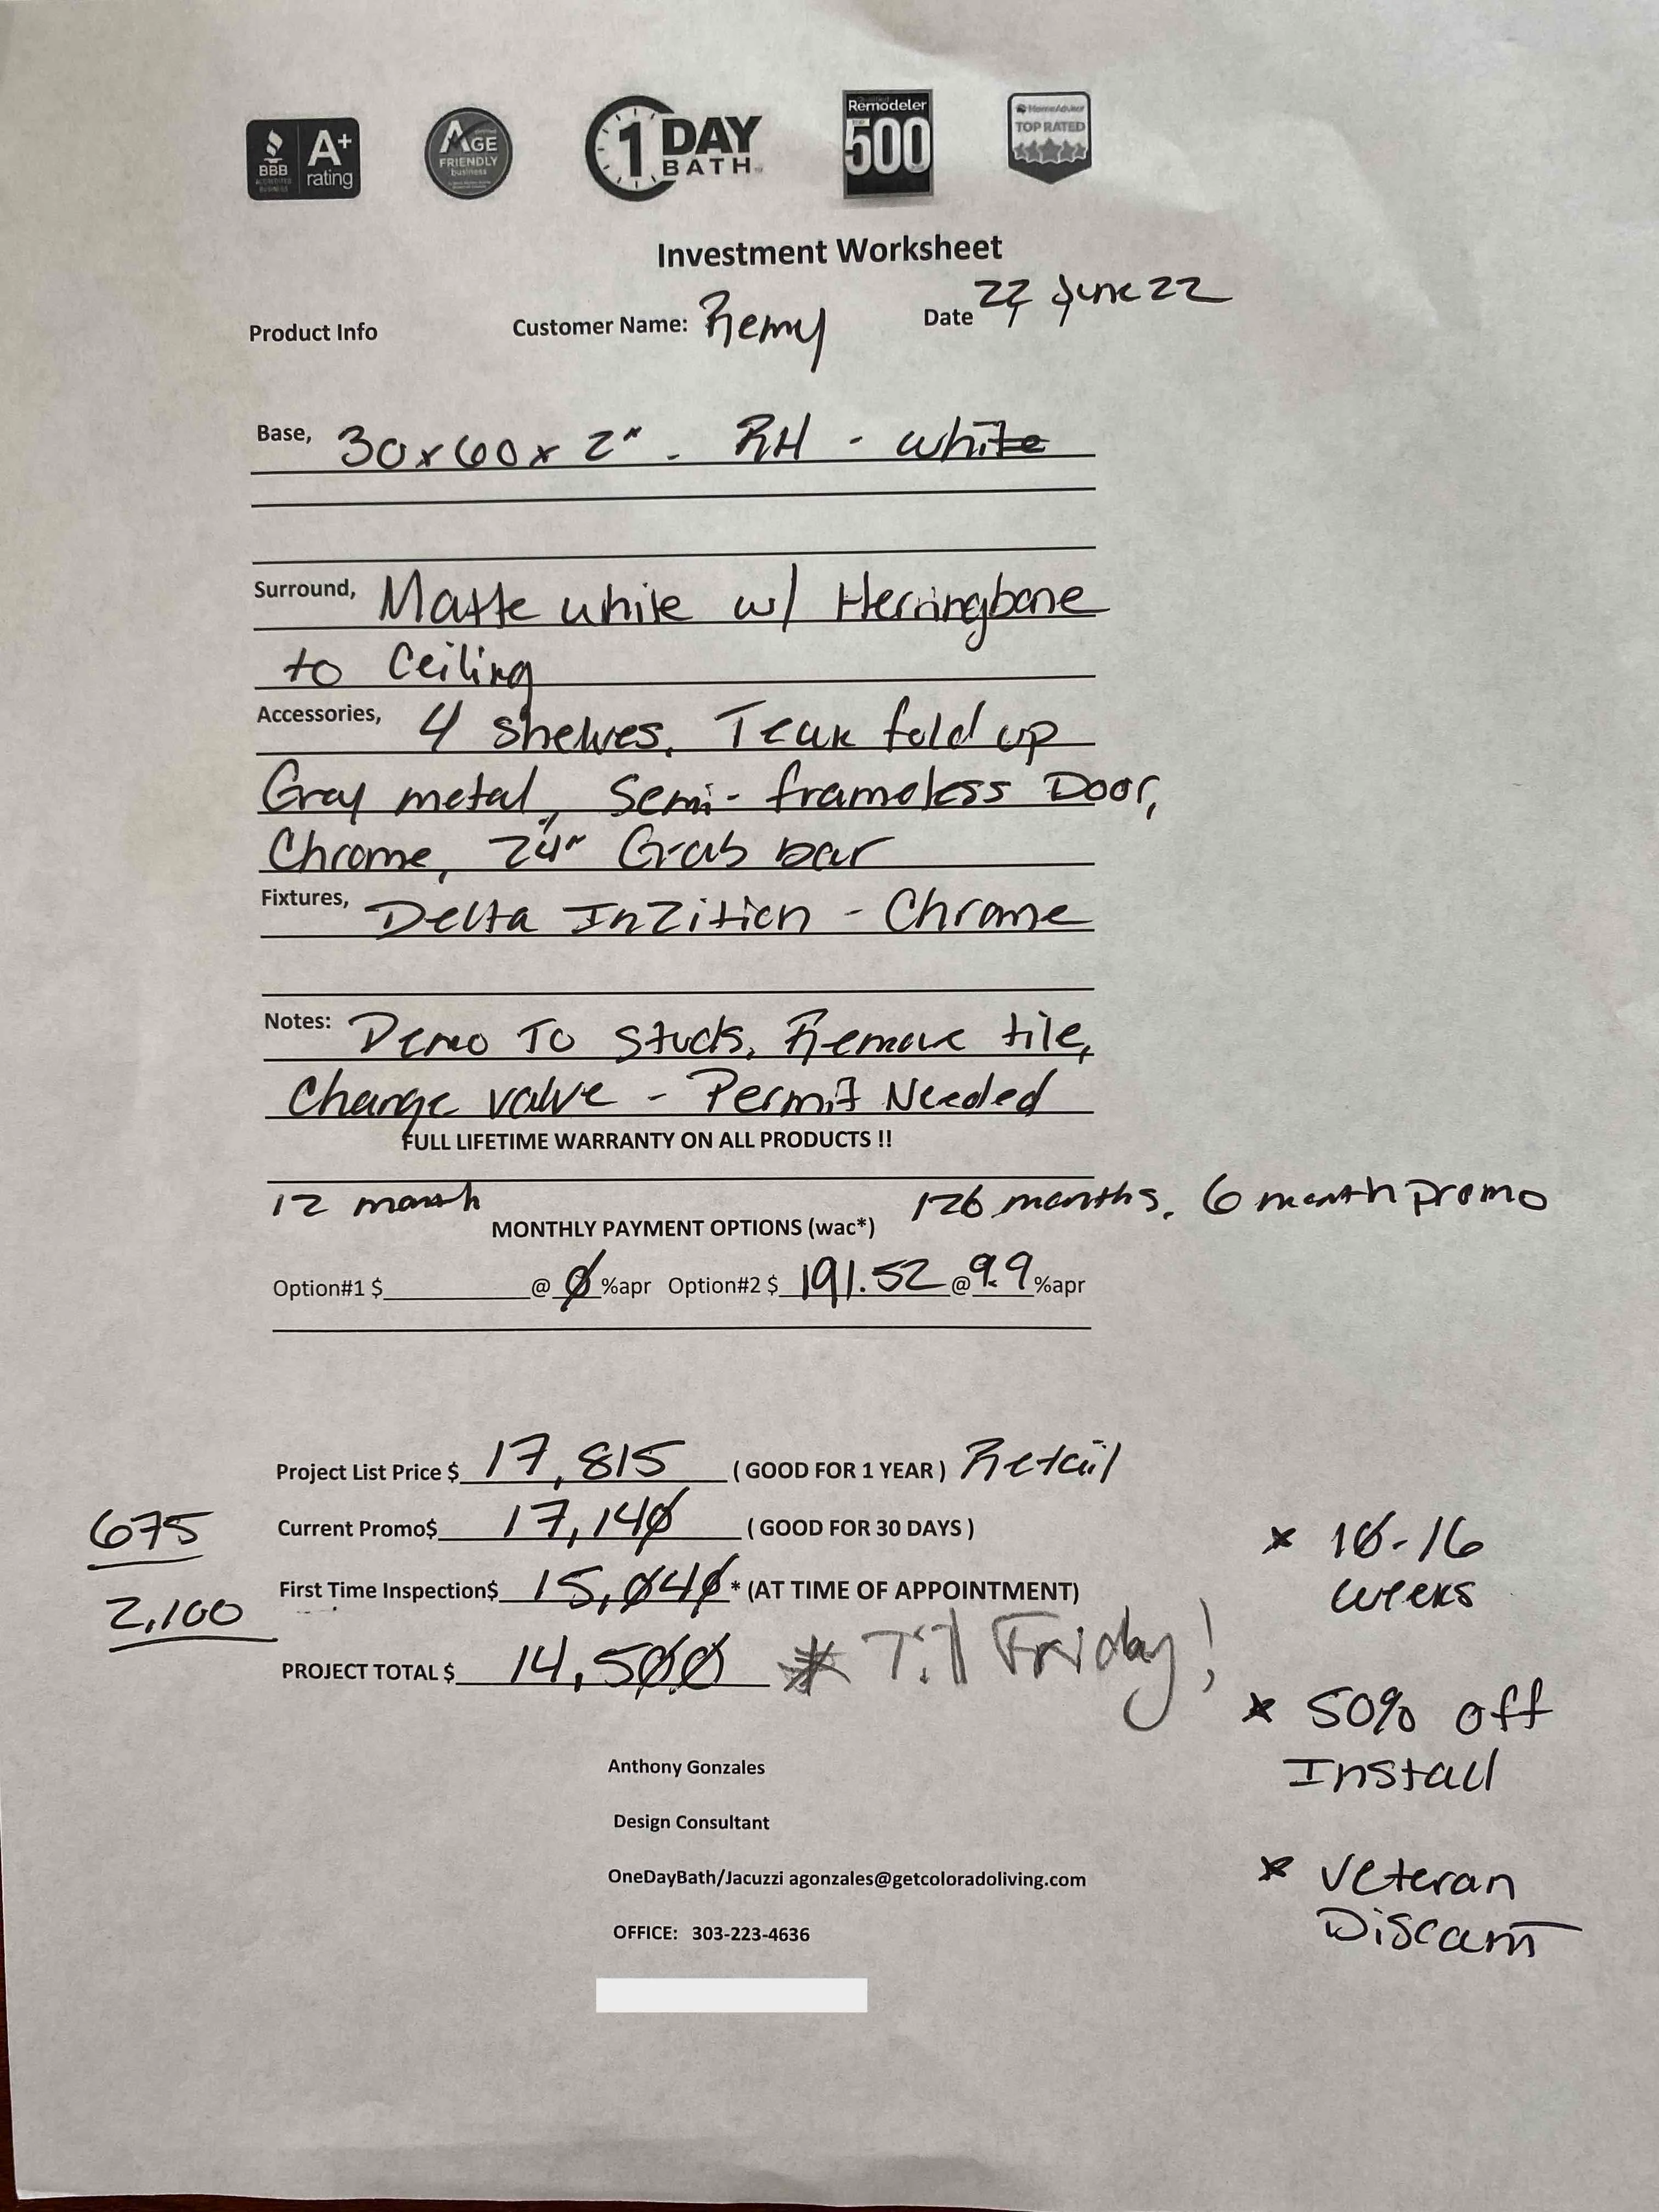 BBB ACCREDITED BUSINESS A+ rating
AGE FRIENDLY business
1 DAY BATH
Remodeler 500
HomeAdvisor TOP RATED
Investment Worksheet
Product Info Customer Name: Remy Date 22 June 22
Base, 30x60x2" - RH - white
Surround, Matte white w/ Herringbone
to Ceiling
Accessories, 4 shelves, Teak fold up
Gray metal, Semi-frameless Door,
Chrome, 24" Grab bar
Fixtures, Delta In2ition - Chrome
Notes: Demo To Studs, Remove tile,
Change valve - Permit Needed
FULL LIFETIME WARRANTY ON ALL PRODUCTS !!
12 month 126 months, 6 month promo
MONTHLY PAYMENT OPTIONS (wac*)
Option#1 $ @ 0 %apr Option#2 $ 191.52 @ 9.9 %apr
Project List Price $ 17,815 ( GOOD FOR 1 YEAR ) Retail
675 Current Promo$ 17,140 ( GOOD FOR 30 DAYS )
2,100 First Time Inspection$ 15,040 * (AT TIME OF APPOINTMENT)
PROJECT TOTAL $ 14,500 * Till Friday!
* 10-16
weeks
* 50% off
Install
* Veteran
Discount
Anthony Gonzales
Design Consultant
OneDayBath/Jacuzzi agonzales@getcoloradoliving.com
OFFICE: 303-223-4636